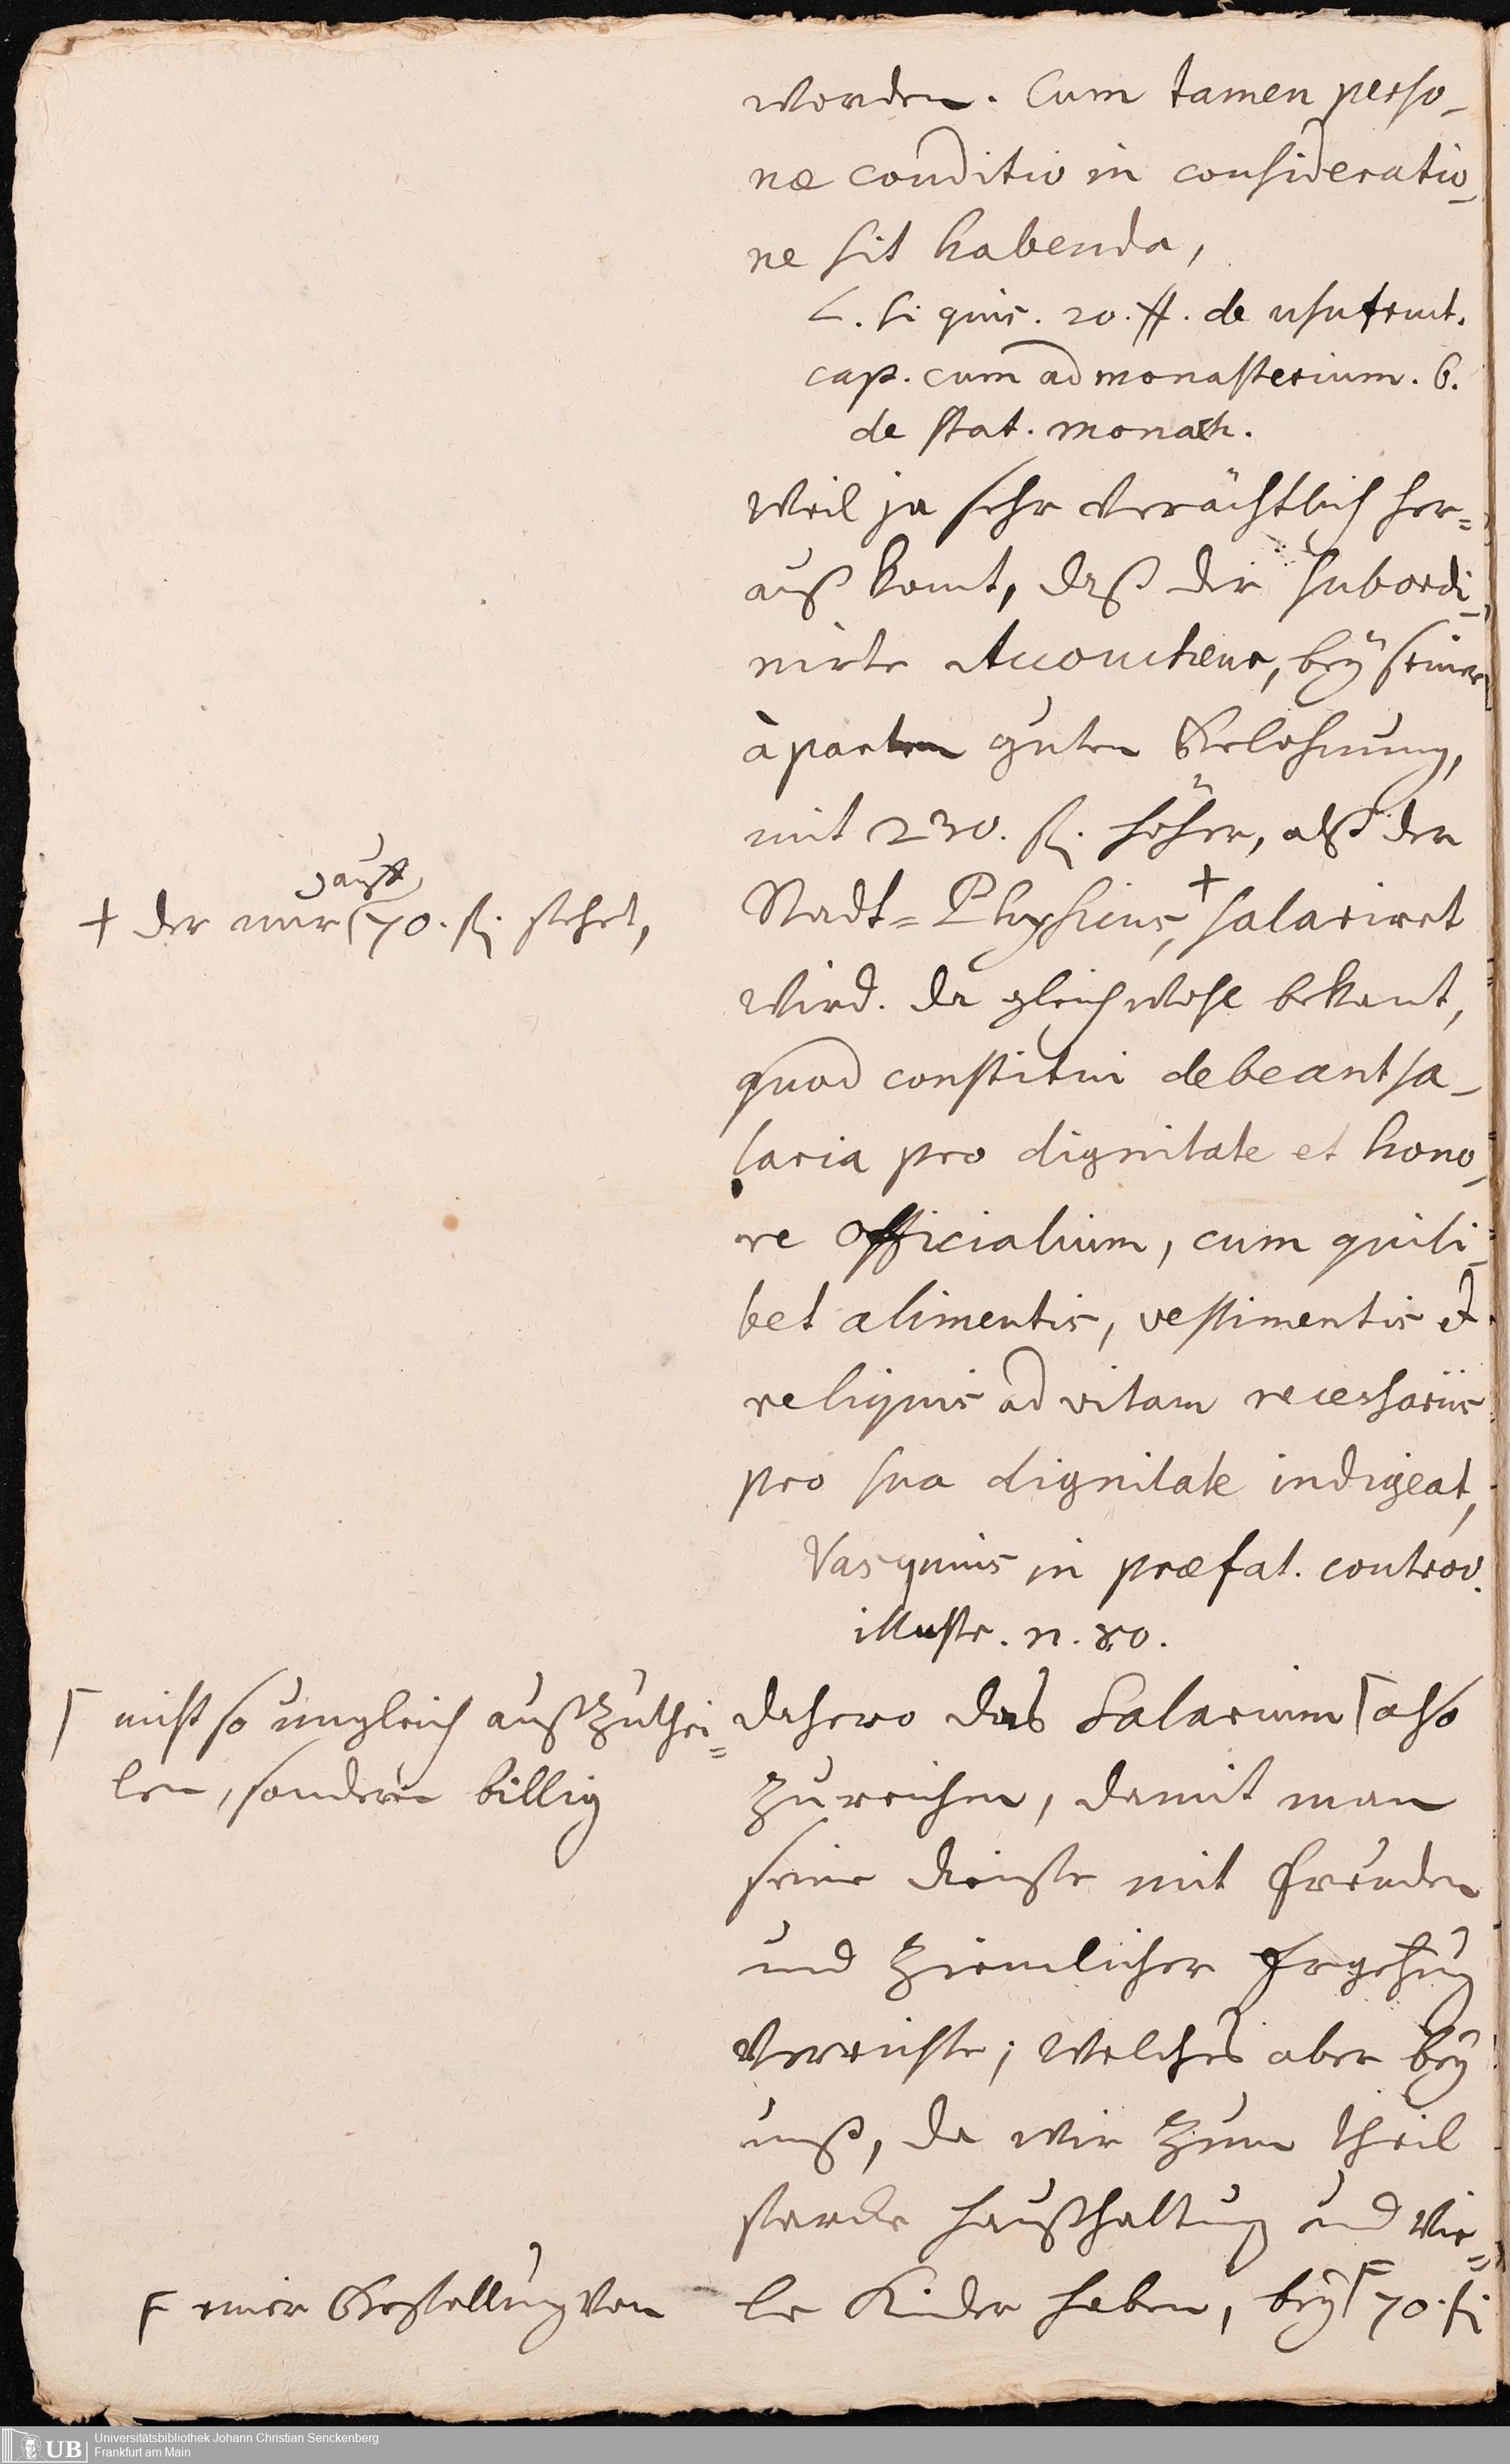 worden. Cum tamen perso-
næ conditio in consideratio-
ne sit habenda,
L. si quis. 20. ff. de usufruct.
cap. cum ad monasterium. 6.
de stat. monach.
weil ja sehr verächtlich her=
auß komt, daß der subordi-
nirte Accoucheur, bey seiner
àparten guten Belohnung,
mit 230. fl. höher, alß der
auff
+ der nur ⌈70. fl. stehet,
Stadt=Physicus,+ salariret
wird. da gleichwohl bekant,
quod constitui debeant sa-
laria pro dignitate et hono-
re officialium, cum quili-
bet alimentis, vestimentis et
reliquis ad vitam necessariis
pro sua dignitate indigeat,
Vasquius in præfat. controv.
illustr. n. 80.
⌈ nicht so ungleich außzuthei=
len, sondern billig
dahero das Salarium ⌈ also
zureichen, damit man
seine Dienste mit Freuden
und ziemlicher
verrichte; welches aber bey
unß, da wir zum theil
starcke haußhaltung und vie=
F einer Bestellung von
le Kinder haben, bey ⌈F 70. fl
Universitätsbibliothek Johann Christian Senckenberg
Frankfurt am Main
UB